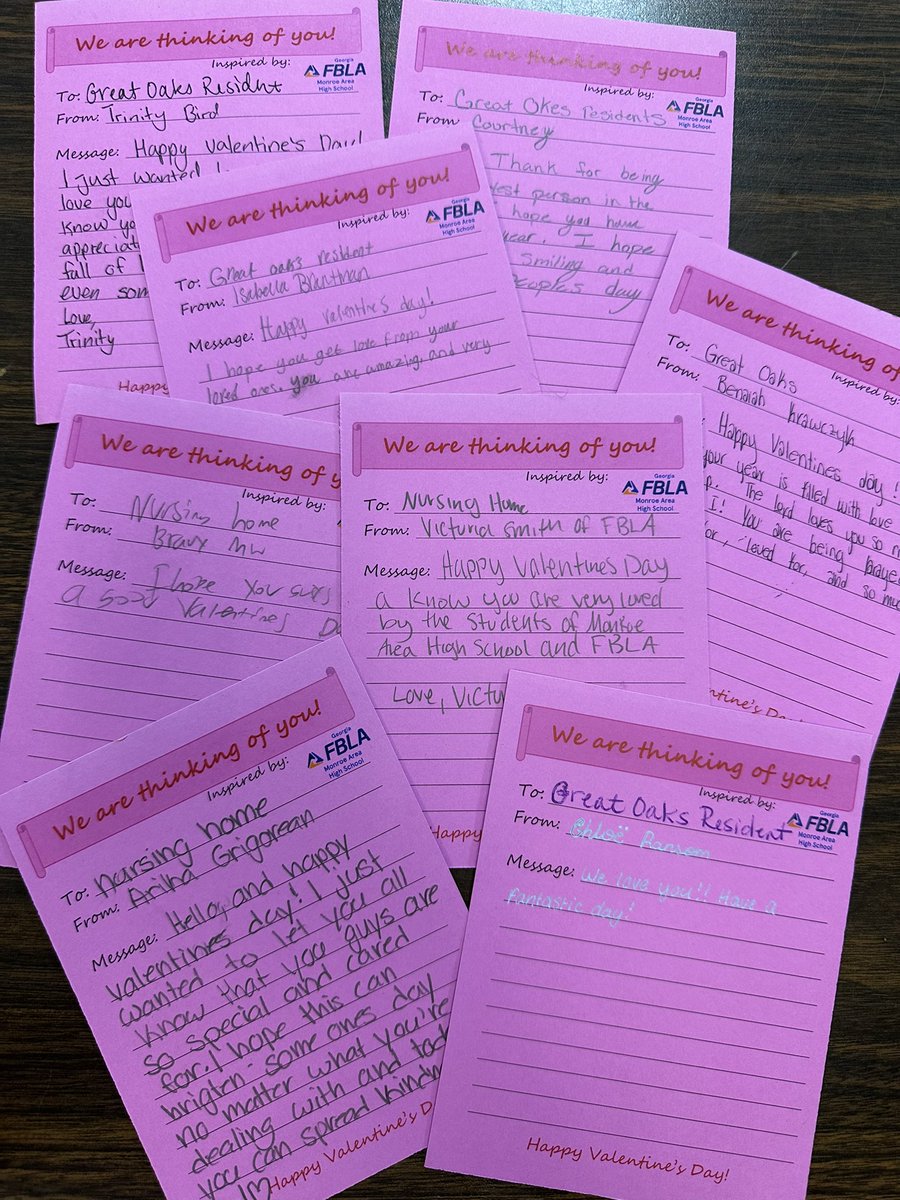 We are thinking of you!
Inspired by:
Georgia
FBLA
Monroe Area
High School
To: Great Oaks Resident
From: Trinity Bird
Message: Happy Valentine's Day!
I just wanted
love you
Know yo
appreciat
full of
even som
Love,
Trinity
Happy
We are thinking of you!
Inspired by:
Georgia
FBLA
Monroe Area
High School
To: Great Okes residents
From Courtney
Thank for being
person in the
hope you have
year. I hope
Smiling and
peoples day
We are thinking of you!
Inspired by:
Georgia
FBLA
Monroe Area
High School
To: Great oaks resident
From: Isabella
Message: Happy valentine's day!
I hope you get love from your
loved ones. you are amazing and very
We are thinking of
Inspired by:
To: Great Oaks
From: Benaiah Krawczyk
Happy Valentines day!
your year is filled with love
p. The lord loves you so m
I! You are being prayed
for, loved for, and so muc
Valentine's Day!
We are thinking of y
Inspired by:
To: Nursing home
From:
Message: I hope you
a Good Valentines Da
We are thinking of you!
Inspired by:
Georgia
FBLA
Monroe Area
High School
To: Nursing Home
From: Victoria Smith of FBLA
Message: Happy Valentines Day
a know you are very loved
by the Students of Monroe
Area High School and FBLA
Love, Victo
Happy
We are thinking of you!
Inspired by:
Georgia
FBLA
Monroe Area
High School
To: Nursing home
From: Ariha Grigorean
Message: Hello, and happy
valentines day! I just
wanted to let you all
know that you guys are
so special and cared
for. I hope this can
brigten some ones day
no matter what you're
dealing with and tod
you can spread kindn
Happy Valentine's Day
We are thinking of you!
Inspired by:
Georgia
FBLA
Monroe Area
High School
To: Great Oaks Resident
From: Chloë Ransom
Message: We love you!! Have a
fantastic day!
Happy Valentine's Day!